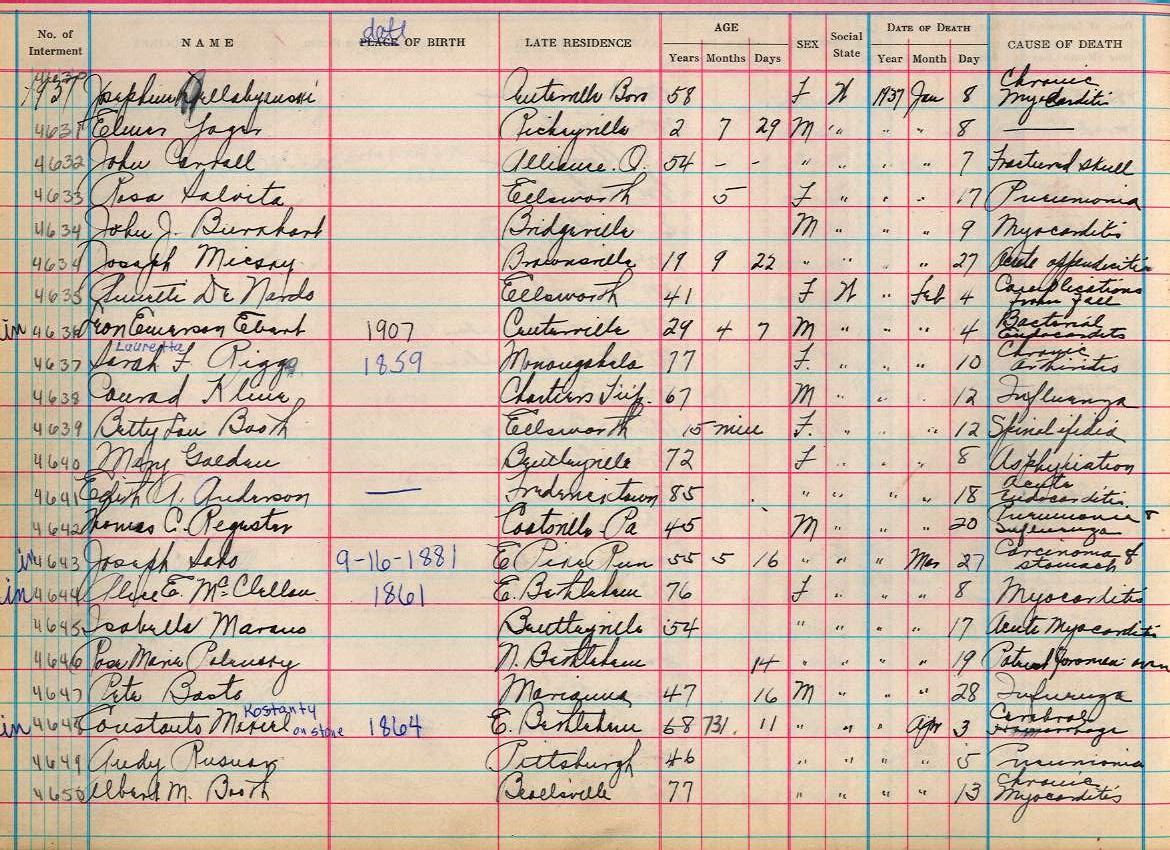 date
No. of Interment NAME PLACE OF BIRTH LATE RESIDENCE AGE Years Months Days SEX Social State DATE OF DEATH Year Month Day CAUSE OF DEATH
1937 4630 Josephine Centerville Boro 58 F W 1937 Jan 8 Chronic Myocarditis
4631 Elmer Yager Rickeyville 2 7 29 M " " " 8 —
4632 John Carroll Alliance. O. 54 - - " " " " 7 Fractured skull
4633 Rosa Salvita Ellsworth 5 F " " " 17 Pneumonia
4634 John J. Burnhart Bridgeville M " " " 9 Myocarditis
4634 Joseph Micsky Brownsville 19 9 22 " " " " 27 Acute appendicitis
4635 De Nardo Ellsworth 41 F W " Feb 4 Complications from fall
in 4636 Leon Emerson Ebert 1907 Centerville 29 4 7 M " " " 4 Bacterial Endocarditis
Lauretta
4637 Sarah F Riggs 1859 Monongahela 77 F. " " " 10 Chronic Arthiritis
4638 Conrad Kline Chartiers Twp. 67 M " " " 12 Influenza
4639 Betty Lou Booth Ellsworth 15 min F. " " " 12 Spinal ifidia
4640 Mary Golden Bentleyville 72 F " " " 8 Asphyxiation
4641 Edith A. Anderson — Fredericktown 85 " " " " 18 Acute Endocarditis
4642 Thomas C. Register Coatsville. Pa 45 M " " " 20 Pneumonia & Influenza
in 4643 Joseph Sabo 9-16-1881 E Pike Run 55 5 16 " " " Mar 27 Carcinoma of stomach
in 4644 Alice E. McClellan 1861 E. Bethlehem 76 F " " " 8 Myocarditis
4645 Isabella Marano Bentleyville 54 " " " " 17 Acute Myocarditis
4646 Rose Marie N. Bethlehem 14 " " " " 19 Patent foramen
4647 Pete Basto Marianna 47 16 M " " " 28 Infuenza
in 4648 Constanto Kostanty on stone 1864 E. Bethlehem 68 731. 11 " " " Apr 3 Cerebral Hemorrhage
4649 Andy Rusnar Pittsburgh 46 " " " " 5 Pneumonia
4650 Albert M. Booth Beallsville 77 " " " " 13 Chronic Myocarditis